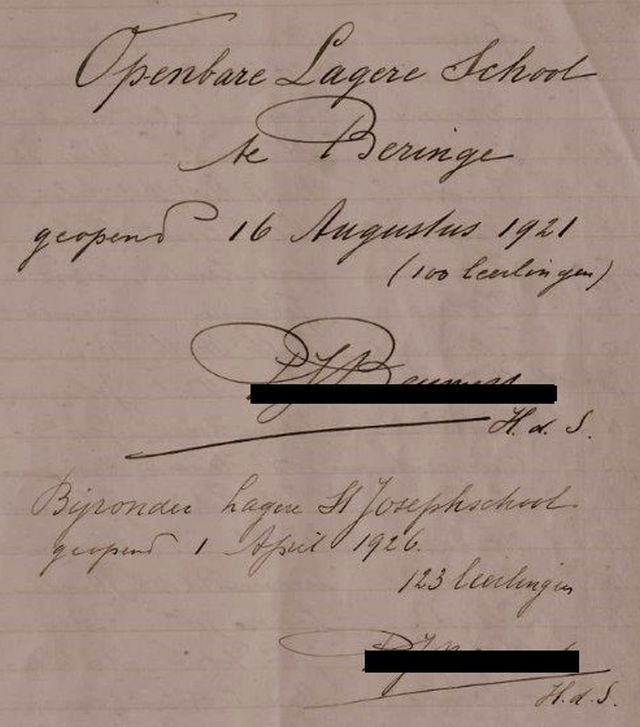 Openbare Lagere School
te Beringe
geopend 16 Augustus 1921
(100 leerlingen)
H. d. S.
Bijzonder Lagere St Josephschool
geopend 1 April 1926.
123 leerlingen
H. d. S.